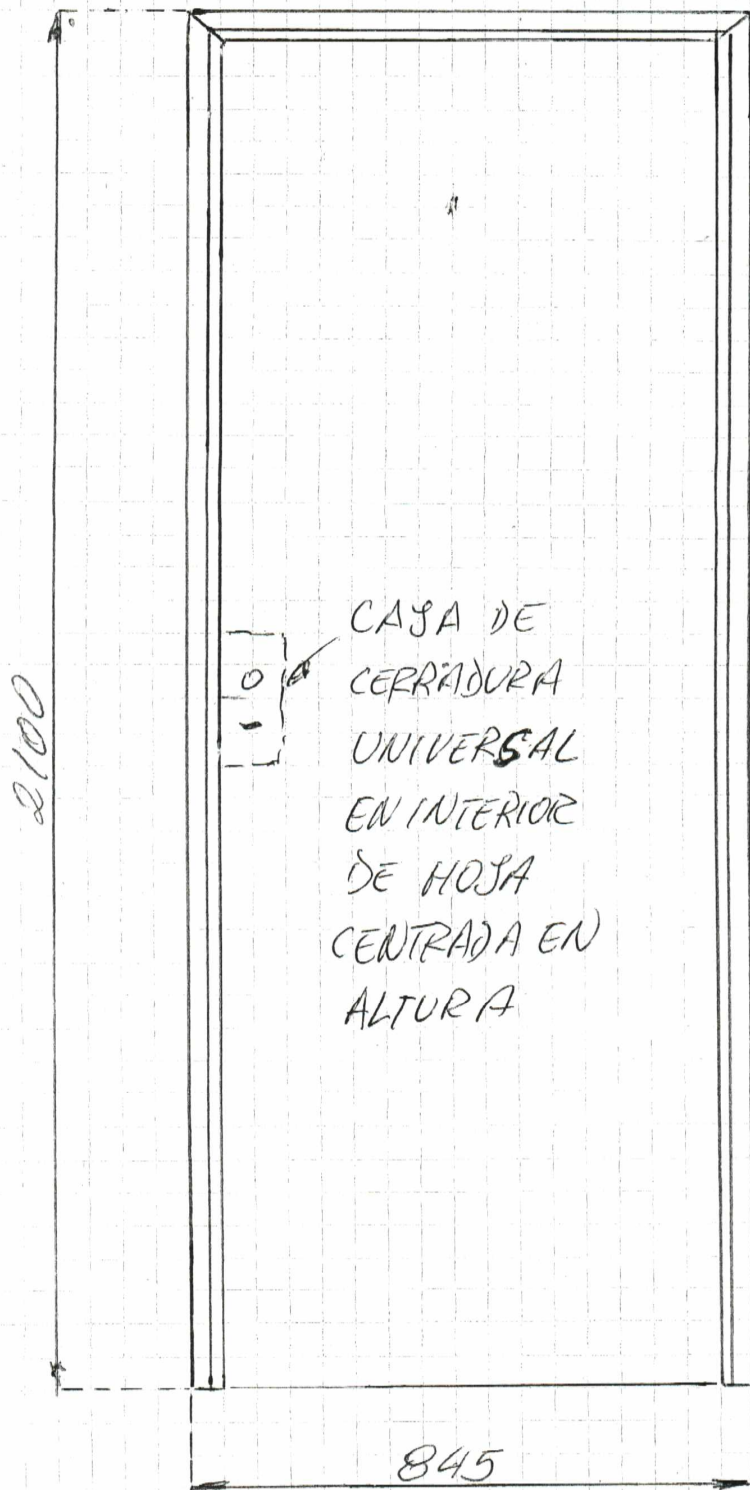 2100
CAJA DE
CERRADURA
UNIVERSAL
EN INTERIOR
DE HOJA
CENTRADA EN
ALTURA
845